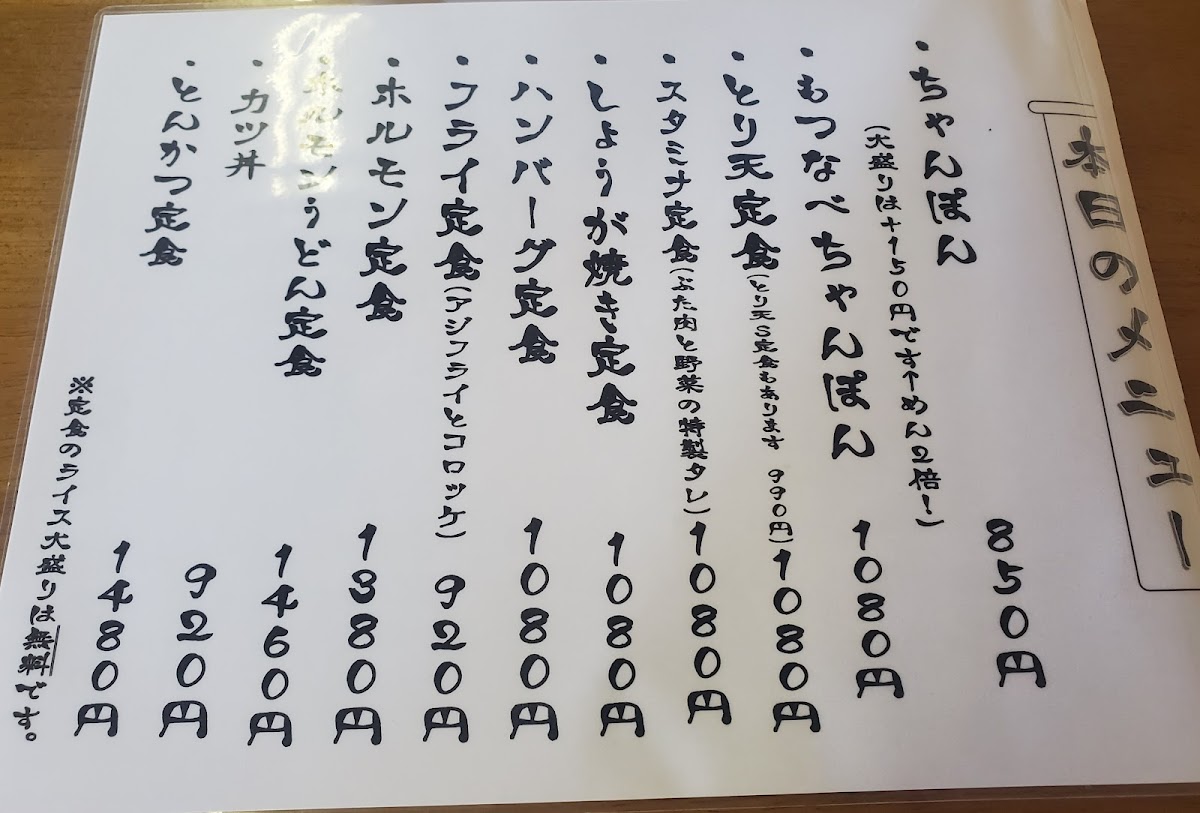 本日のメニュー
・ちゃんぽん 850円
(大盛りは+150円です↑めん2倍!)
・もつなべちゃんぽん 1080円
・とり天定食(とり天S定食もあります 990円)1080円
・スタミナ定食(ぶた肉と野菜の特製タレ)1080円
・しょうが焼き定食 1080円
・ハンバーグ定食 1080円
・フライ定食(アジフライとコロッケ) 920円
・ホルモン定食 1380円
・ホルモンうどん定食 1460円
・カツ丼 920円
・とんかつ定食 1480円
※定食のライス大盛りは無料です。